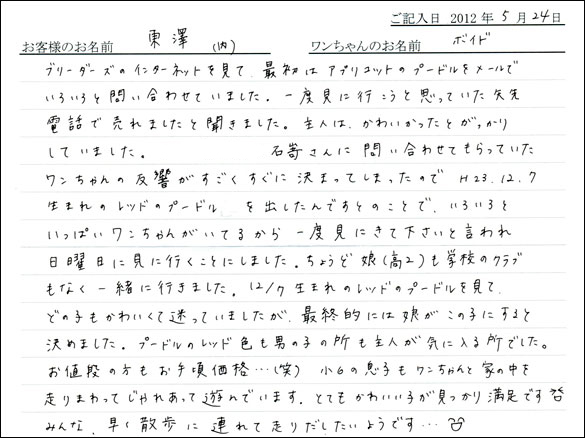 ご記入日 2012年5月24日
お客様のお名前 東澤(内) ワンちゃんのお名前 ボイド
ブリーダーズのインターネットを見て、最初はアプリコットのプードルをメールで
いろいろと問い合わせていました。一度見に行こうと思っていた矢先
電話で売れましたと聞きました。主人は、かわいかったとがっかり
していました。 石嵜さんに問い合わせてもらっていた
ワンちゃんの反響がすごくすぐに決まってしまったので H23.12.7
生まれのレッドのプードル を出したんですとのことで、いろいろと
いっぱいワンちゃんがいてるから一度見にきて下さいと言われ
日曜日に見に行くことにしました。ちょうど娘(高2)も学校のクラブ
もなく一緒に行きました。12/7生まれのレッドのプードルを見て、
どの子もかわいくて迷っていましたが、最終的には娘がこの子にすると
決めました。プードルのレッド色も男の子の所も主人が気に入る所でした。
お値段の方もお手頃価格…(笑) 小6の息子もワンちゃんと家の中を
走りまわってじゃれあって遊んでいます。とてもかわいい子が見つかり満足です
みんな、早く散歩に連れて走りだしたいようです…